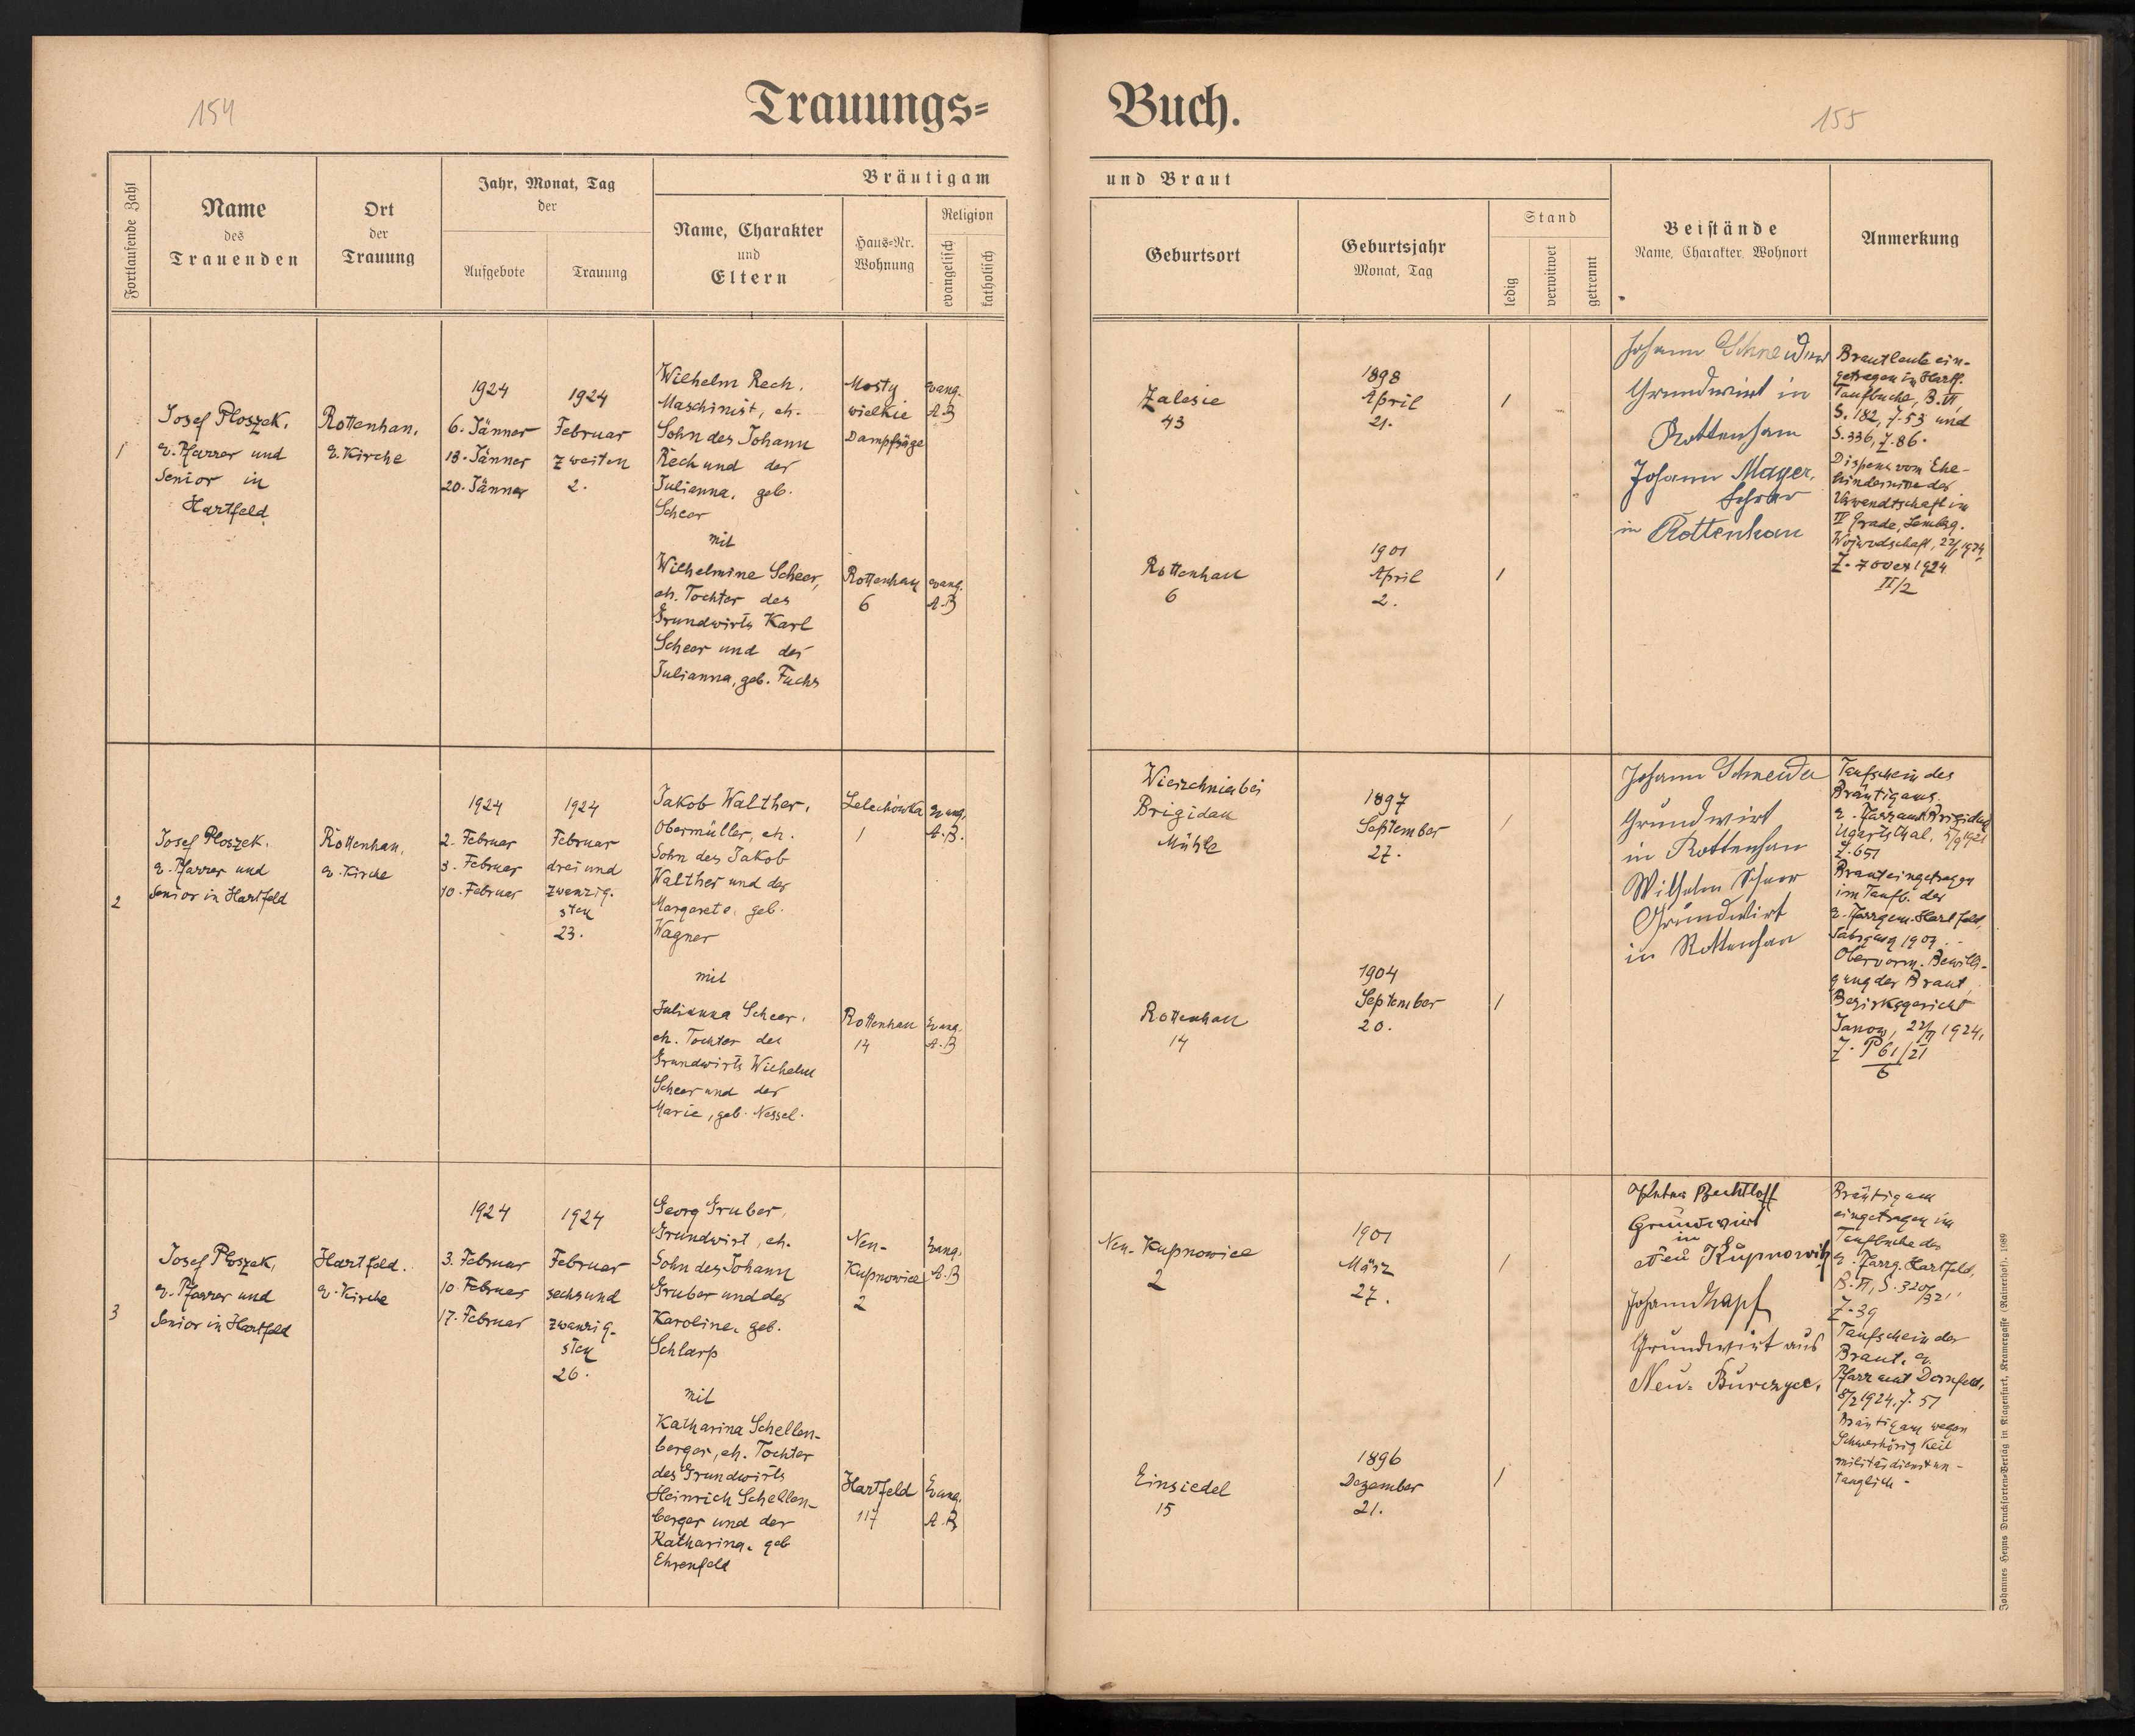 154
Trauungs=
Fortlaufende Zahl
Name
des
Trauenden
Ort
der
Trauung
Jahr, Monat, Tag
der
Aufgebote
Trauung
Bräutigam
Name, Charakter
und
Eltern
Haus=Nr.
Wohnung
Religion
evangelisch
katholisch
1
Josef Ploszek,
e. Pfarrer und
Senior in
Hartfeld
Rottenhan,
e. Kirche
1924
6. Jänner
13. Jänner
20. Jänner
1924
Februar
zweiten
2.
Wilhelm Rech,
Maschinist, eh.
Sohn des Johann
Rech und der
Julianna, geb.
Scheer
mit
Wilhelmine Scheer,
eh. Tochter des
Grundwirts Karl
Scheer und der
Julianna, geb. Fuchs
Mosty
wielkie
Dampfsäge
evang.
A.B
Rottenhan
6
evang.
A.B
2
Josef Ploszek,
e. Pfarrer und
Senior in Hartfeld
Rottenhan,
e. Kirche
1924
2. Februar
3. Februar
10. Februar
1924
Februar
drei und
zwanzig-
sten
23.
Jakob Walther,
Obermüller, eh.
Sohn des Jakob
Walther und der
Margarete, geb.
Wagner
mit
Julianna Scheer,
eh. Tochter des
Grundwirts Wilhelm
Scheer und der
Marie, geb. Nessel.
Lelechówka
1
Evang.
A.B.
Rottenhan
14
Evang.
A.B
3
Josef Ploszek,
e. Pfarrer und
Senior in Hartfeld
Hartfeld.
e. Kirche
1924
3. Februar
10. Februar
17. Februar
1924
Februar
sechsund
zwanzig-
sten
26.
Georg Gruber,
Grundwirt, eh.
Sohn des Johann
Gruber und der
Karoline, geb.
Schlarp
mit
Katharina Schellen-
berger, eh. Tochter
des Grundwirts
Heinrich Schellen-
berger und der
Katharina, geb
Ehrenfeld
Neu-
Kupnowice
2
Evang.
A.B
Hartfeld
117
Evang.
A.B
Buch.
155
und Braut
Geburtsort
Geburtsjahr
Monat, Tag
Stand
ledig
verwitwet
getrennt
Beistände
Name, Charakter, Wohnort
Anmerkung
Zalesie
43
1898
April
21.
1
Rottenhan
6
1901
April
2.
1
Johann Schneider
Grundwirt in
Rottenhan
Johann Mayer,
Lehrer
in Rottenhan
Brautleute ein-
getragen in Hartf.
Taufbuche, B. VI
S. 182, Z. 53 und
S. 336, Z. 86.
Dispens vom Ehe-
hindernisse der
Verwandtschaft im
Grade, Lemberg.
Wojwodschaft,
1924
II/2
Wierzchnia bei
Brigidau
Mühle
1897
September
27.
1
Rottenhan
14
1904
September
20.
1
Johann Schneider
Grundwirt
in Rottenhan
Wilhelm Scheer
Grundwirt
in Rottenhan
Taufschein des
Bräutigams,
e. Pfarramt Brigidau
Ugartsthal,
Z. 651
Braut eingetragen
im Taufb. der
e. Pfarrgem. Hartfeld,
Jahrgang 1904.
Obervorm. Bewilli-
gung der Braut,
Bezirksgericht
Janow, 22/II 1924,
Z. P 61/21
6
Neu-Kupnowice
2
1901
März
27.
1
Einsiedel
15
1896
Dezember
21.
1
Bechtloff
Grundwirt
in
Neu Kupnowitz
Johann Hapf
Grundwirt aus
Neu-Burczyce.
Bräutigam
eingetragen im
Taufbuche der
e. Pfarrg. Hartfeld,
B. VI, S. 320/321,
Z. 39
Taufschein der
Braut, e.
Pfarramt Dornfeld,
8/2 1924, Z. 57
Bräutigam wegen
Schwerhörigkeit
militärdienstun-
tauglich.
Johannes Heyns Drucksorten=Verlag in Klagenfurt, Kramergasse (Rainerhof). 1989